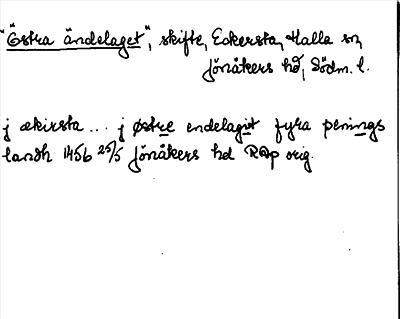 "Östra ändelaget", skifte, Eckersta, Halla sn,
Jönåkers hd, Södm. l.
j ækirsta... j østre endelagit fyra penings
landh 1456 25/5 Jönåkers hd RAp orig.